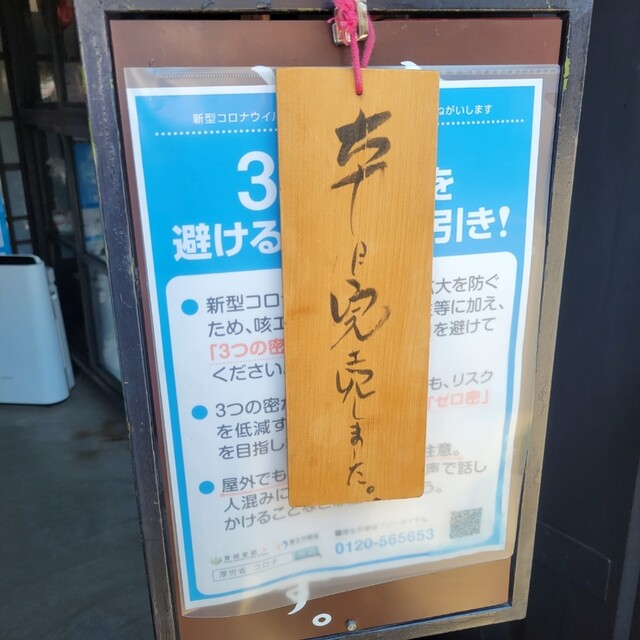 新型コロナウイル
ねがいします
3
を
避ける
引き!
本日完売しました。
新型コロ
大を防ぐ
ため、咳エ
等に加え、
「3つの密
を避けて
ください
3つの密
も、リスク
を低減す
「ゼロ密」
を目指し
屋外でも
注意。
人混みに
声で話し
かけること
う。
0120-565653
厚労省 コロナ
す